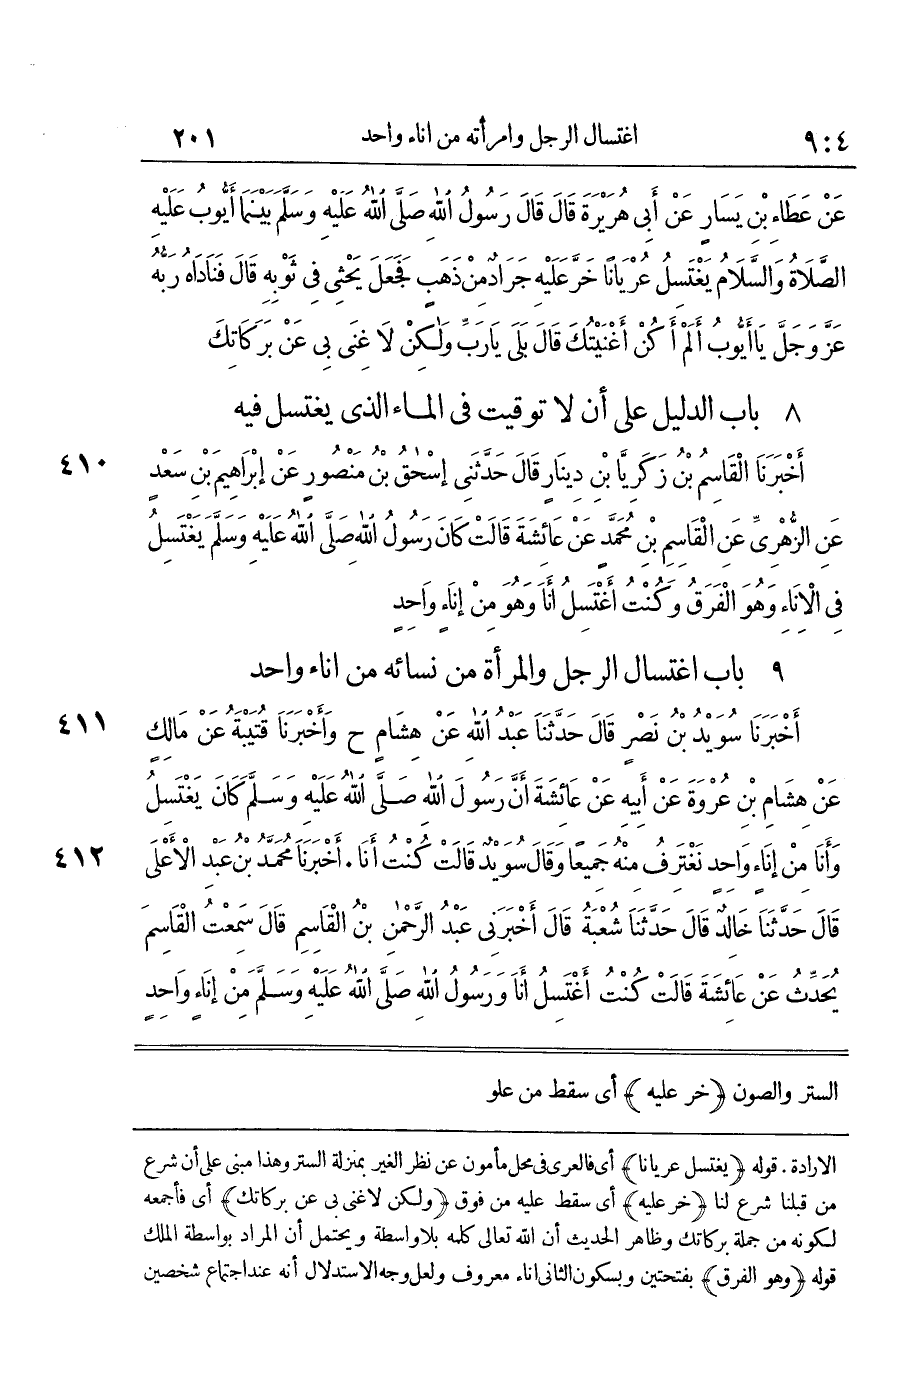 ٩:٤ اغتسال الرجل وامرأته من اناء واحد ٢٠١
عَنْ عَطَاءِ بْنِ يَسَارٍ عَنْ أَبِي هُرَيْرَةَ قَالَ قَالَ رَسُولُ اللهِ صَلَّى اللهُ عَلَيْهِ وَسَلَّمَ بَيْنَمَا أَيُّوبُ عَلَيْهِ
الصَّلَاةُ وَالسَّلَامُ يَغْتَسِلُ عُرْيَانًا خَرَّ عَلَيْهِ جَرَادٌ مِنْ ذَهَبٍ فَجَعَلَ يَحْثِى فِى ثَوْبِهِ قَالَ فَنَادَاهُ رَبُّهُ
عَزَّ وَجَلَّ يَا أَيُّوبُ أَلَمْ أَكُنْ أَغْنَيْتُكَ قَالَ بَلَى يَارَبِّ وَلَكِنْ لَا غِنَى بِى عَنْ بَرَكَاتِكَ
٨ باب الدليل على أن لا توقيت فى المـاء الذى يغتسل فيه
أَخْبَرَنَا الْقَاسِمُ بْنُ زَكَرِيَّا بْنِ دِينَارٍ قَالَ حَدَّثَنِى إِسْحَقُ بْنُ مَنْصُورٍ عَنْ إِبْرَاهِيمَ بْنِ سَعْدٍ ٤١٠
عَنِ الزُّهْرِىِّ عَنِ الْقَاسِمِ بْنِ مُحَمَّدٍ عَنْ عَائِشَةَ قَالَتْ كَانَ رَسُولُ اللهِ صَلَّى اللهُ عَلَيْهِ وَسَلَّمَ يَغْتَسِلُ
فِى الْإِنَاءِ وَهُوَ الْفَرَقُ وَكُنْتُ أَغْتَسِلُ أَنَا وَهُوَ مِنْ إِنَاءٍ وَاحِدٍ
٩ باب اغتسال الرجل والمرأة من نسائه من اناء واحد
أَخْبَرَنَا سُوَيْدُ بْنُ نَصْرٍ قَالَ حَدَّثَنَا عَبْدُ اللهِ عَنْ هِشَامٍ ح وَأَخْبَرَنَا قُتَيْبَةُ عَنْ مَالِكٍ ٤١١
عَنْ هِشَامِ بْنِ عُرْوَةَ عَنْ أَبِيهِ عَنْ عَائِشَةَ أَنَّ رَسُولَ اللهِ صَلَّى اللهُ عَلَيْهِ وَسَلَّمَ كَانَ يَغْتَسِلُ
وَأَنَا مِنْ إِنَاءٍ وَاحِدٍ نَغْتَرِفُ مِنْهُ جَمِيعًا وَقَالَ سُوَيْدٌ قَالَتْ كُنْتُ أَنَا . أَخْبَرَنَا مُحَمَّدُ بْنُ عَبْدِ الْأَعْلَى ٤١٢
قَالَ حَدَّثَنَا خَالِدٌ قَالَ حَدَّثَنَا شُعْبَةُ قَالَ أَخْبَرَنِى عَبْدُ الرَّحْمٰنِ بْنُ الْقَاسِمِ قَالَ سَمِعْتُ الْقَاسِمَ
يُحَدِّثُ عَنْ عَائِشَةَ قَالَتْ كُنْتُ أَغْتَسِلُ أَنَا وَرَسُولُ اللهِ صَلَّى اللهُ عَلَيْهِ وَسَلَّمَ مِنْ إِنَاءٍ وَاحِدٍ
الستر والصون ﴿خر عليه﴾ أى سقط من علو
الارادة . قوله ﴿يغتسل عريانا﴾ أى فالعرى فى محل مأمون عن نظر الغير بمنزلة الستر وهذا مبنى على أن شرع
من قبلنا شرع لنا ﴿خر عليه﴾ أى سقط عليه من فوق ﴿ولكن لاغنى بى عن بركاتك﴾ أى فأجمعه
لكونه من جملة بركاتك وظاهر الحديث أن الله تعالى كلمه بلا واسطة ويحتمل أن المراد بواسطة الملك
قوله ﴿وهو الفرق﴾ بفتحتين وبسكون الثانى اناء معروف ولعل وجه الاستدلال أنه عند اجتماع شخصين